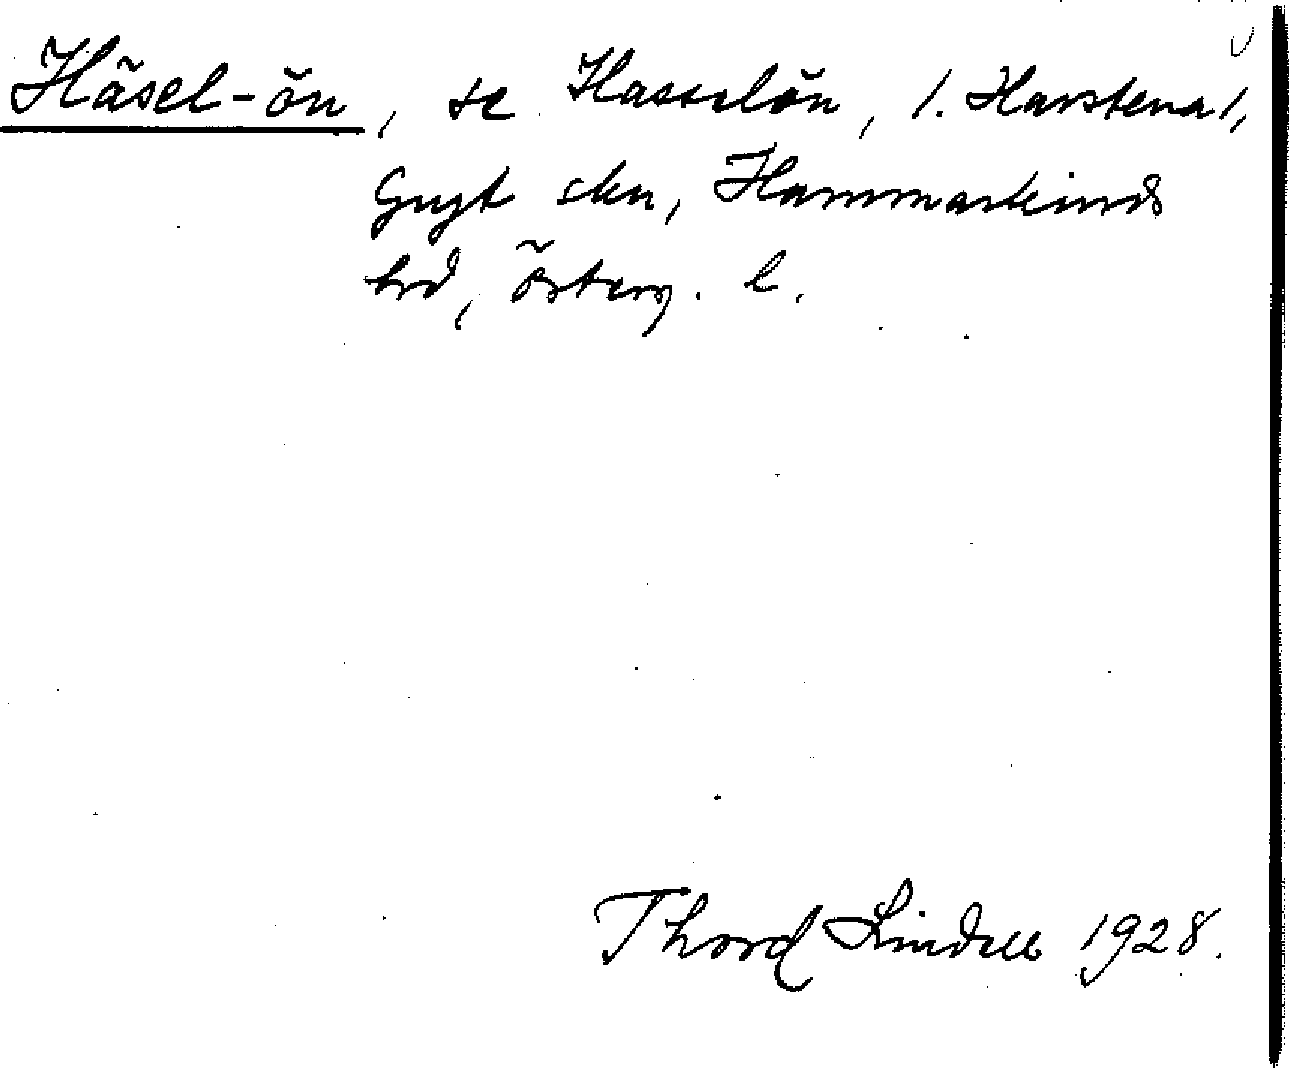 Häsel-ön, se Hasselön, /. Harstena /,
Gryt skn, Hammarkinds
hrd, Österg. l.
Thord Lindell 1928.